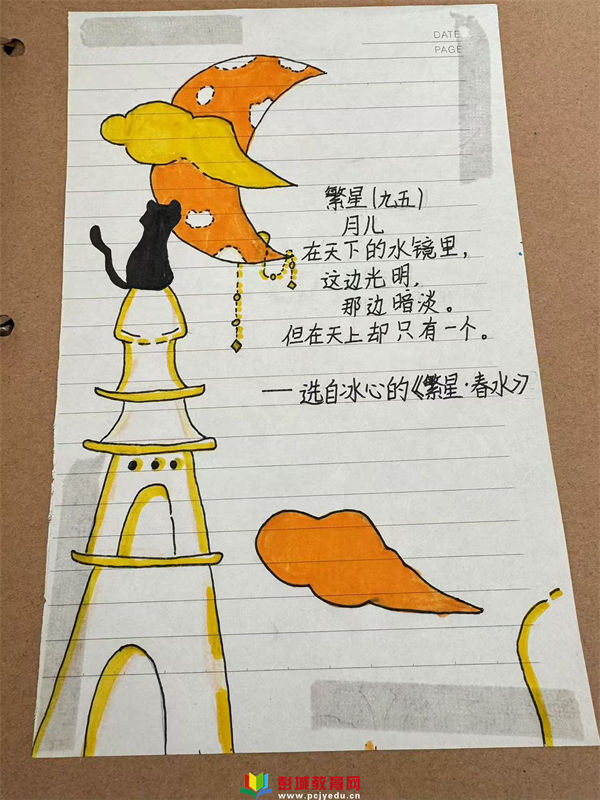 DATE
PAGE
繁星(九五)
月儿
在天下的水镜里，
这边光明，
那边暗淡。
但在天上却只有一个。
——选自冰心的《繁星·春水》
彭城教育网
www.pcjyedu.cn